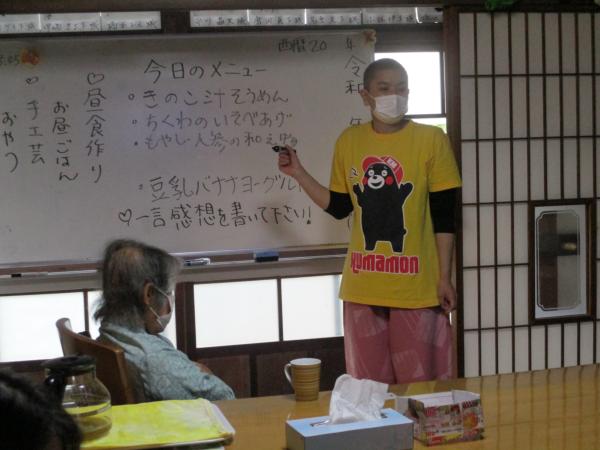 西暦20 年
令和 年
今日のメニュー
・きのこ汁そうめん
・ちくわのいそべあげ
・もやし・人参の和え物
・豆乳バナナヨーグルト
♡一言感想を書いて下さい!!
♡昼食作り
お昼ごはん
・手工芸
おやつ
KUMAMON